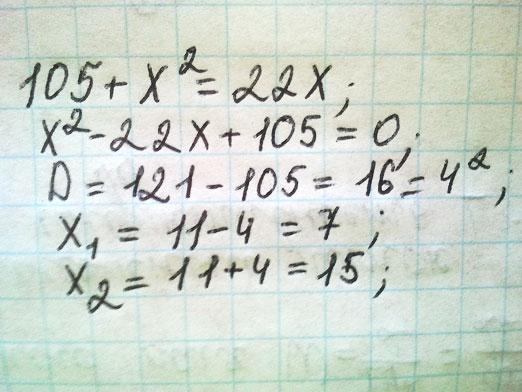 105 + x² = 22x;
x² - 22x + 105 = 0;
D = 121 - 105 = 16 = 4²;
x₁ = 11 - 4 = 7;
x₂ = 11 + 4 = 15;